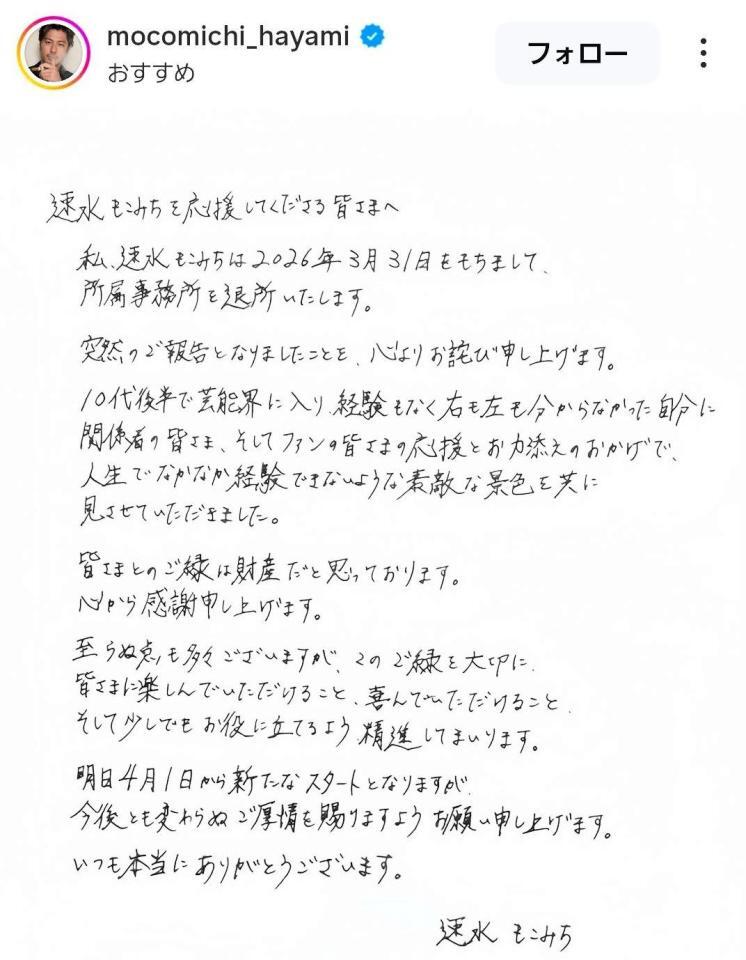 mocomichi_hayami
おすすめ
フォロー
速水もこみちを応援してくださる皆さまへ
私、速水もこみちは2026年3月31日をもちまして、
所属事務所を退所いたします。
突然のご報告となりましたことを、心よりお詫び申し上げます。
10代後半で芸能界に入り、経験もなく右も左も分からなかった自分に
関係者の皆さま、そしてファンの皆さまの応援とお力添えのおかげで、
人生でなかなか経験できないような素敵な景色を共に
見させていただきました。
皆さまとのご縁は財産だと思っております。
心から感謝申し上げます。
至らぬ点も多々ございますが、このご縁を大切に、
皆さまに楽しんでいただけること、喜んでいただけること、
そして少しでもお役に立てるよう精進してまいります。
明日4月1日から新たなスタートとなりますが、
今後とも変わらぬご厚情を賜りますようお願い申し上げます。
いつも本当にありがとうございます。
速水もこみち